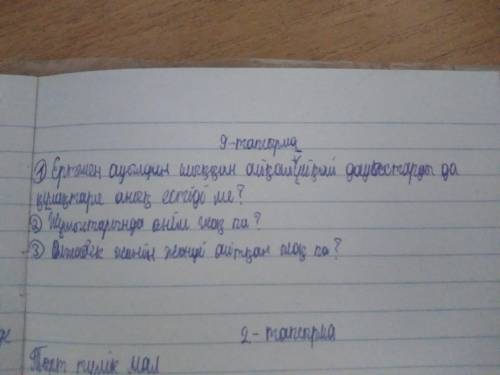 9-тапсырма
① Ертемен ауылдан шыққан айқай үйқай дауыстарды да
құлақтары анық естіді ме?
② Жұмыстарында өнім жоқ па?
③ жөнін жөнді айтқан жоқ па?
2-тапсырма
Төрт түлік мал